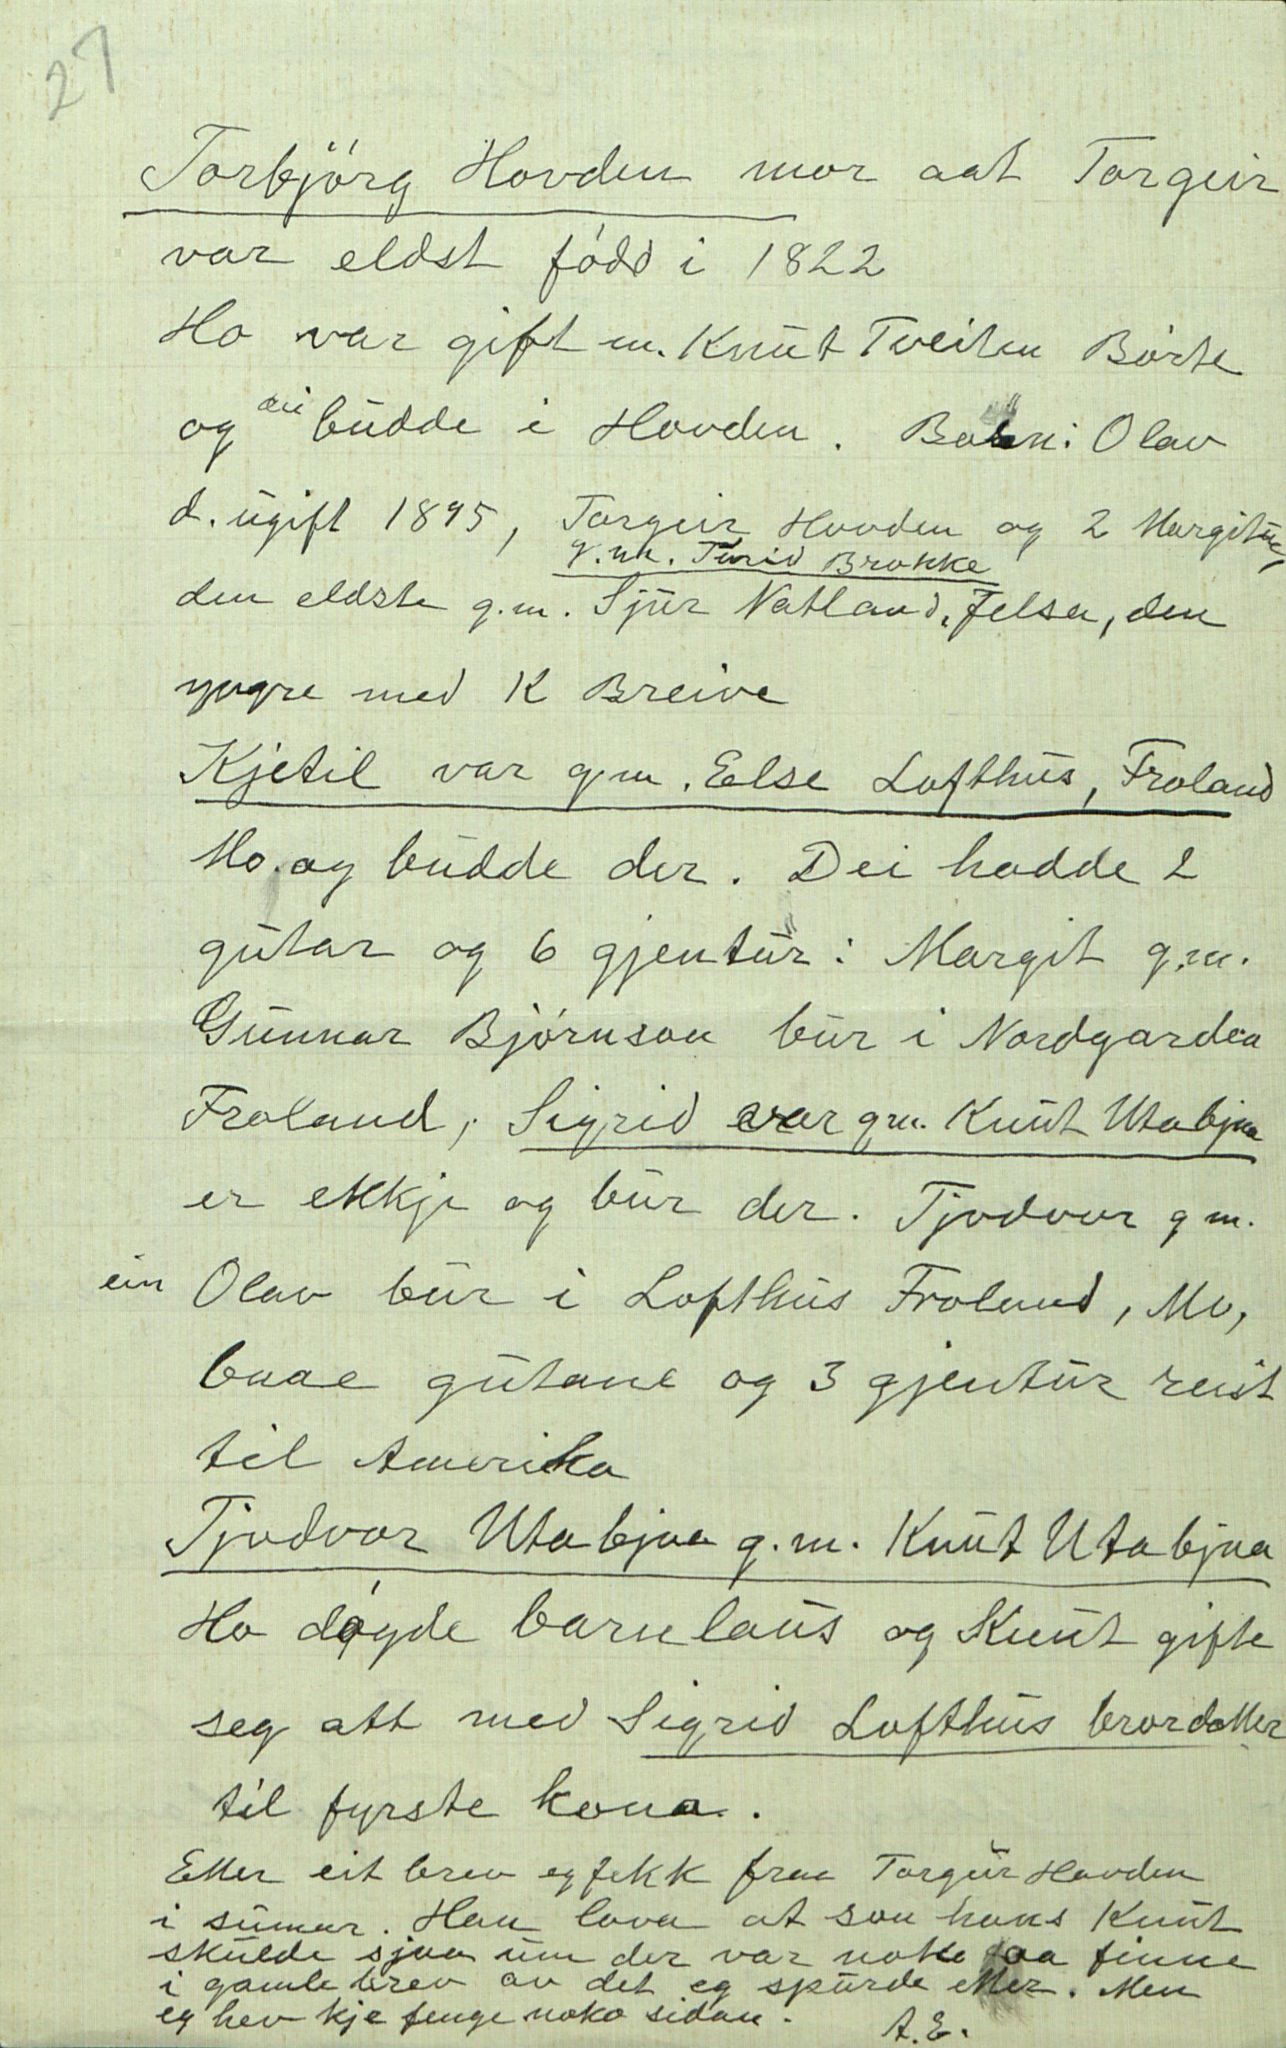 27
Torbjörg Hovden mor aat Torgeir
var eldst född i 1822
Ho var gift m. Knut Tveiten Börte
og dei budde i Hovden. Born: Olav
d. ugift 1895, Torgeir Hovden og 2 Margitur,
g.m. Turid Brokke
den eldste g.m. Sjur Natland, Jelsa, den
yngre med K Breive
Kjetil var g.m. Else Lofthus, Froland
Mo. og budde der. Dei hadde 2
gutar og 6 gjentur: Margit g.m.
Gunnar Björnson bur i Nordgarden
Froland, Sigrid var g.m. Knut Utabjaa
er ekkje og bur der. Tjodvor g m.
ein Olav bur i Lofthus Froland, Mo,
baae gutane og 3 gjentur reist
til Amerika
Tjodvor Utabjaa g.m. Knut Utabjaa
Ho döyde barnlaus og Knut gifte
seg att med Sigrid Lofthus brordotter
til fyrste kona.
Etter eit brev eg fekk fraa Torgeir Hovden
i sumar. Han lova at son hans Knut
skulde sjaa um der var noko aa finne
i gamle brev av det eg spurde etter. Men
eg hev kje fenge noko sidan. A.E.